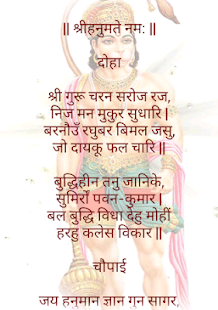 || श्रीहनुमते नम: ||
दोहा
श्री गुरू चरन सरोज रज,
निज मन मुकुर सुधारि |
बरनौउँ रघुबर बिमल जसु,
जो दायकू फल चारि ||
बुद्धिहीन तनु जानिके,
सुमिरौं पवन-कुमार |
बल बुद्धि विधा देहु मोहीं
हरहु कलेस विकार ||
चौपाई
जय हनुमान ज्ञान गुन सागर,